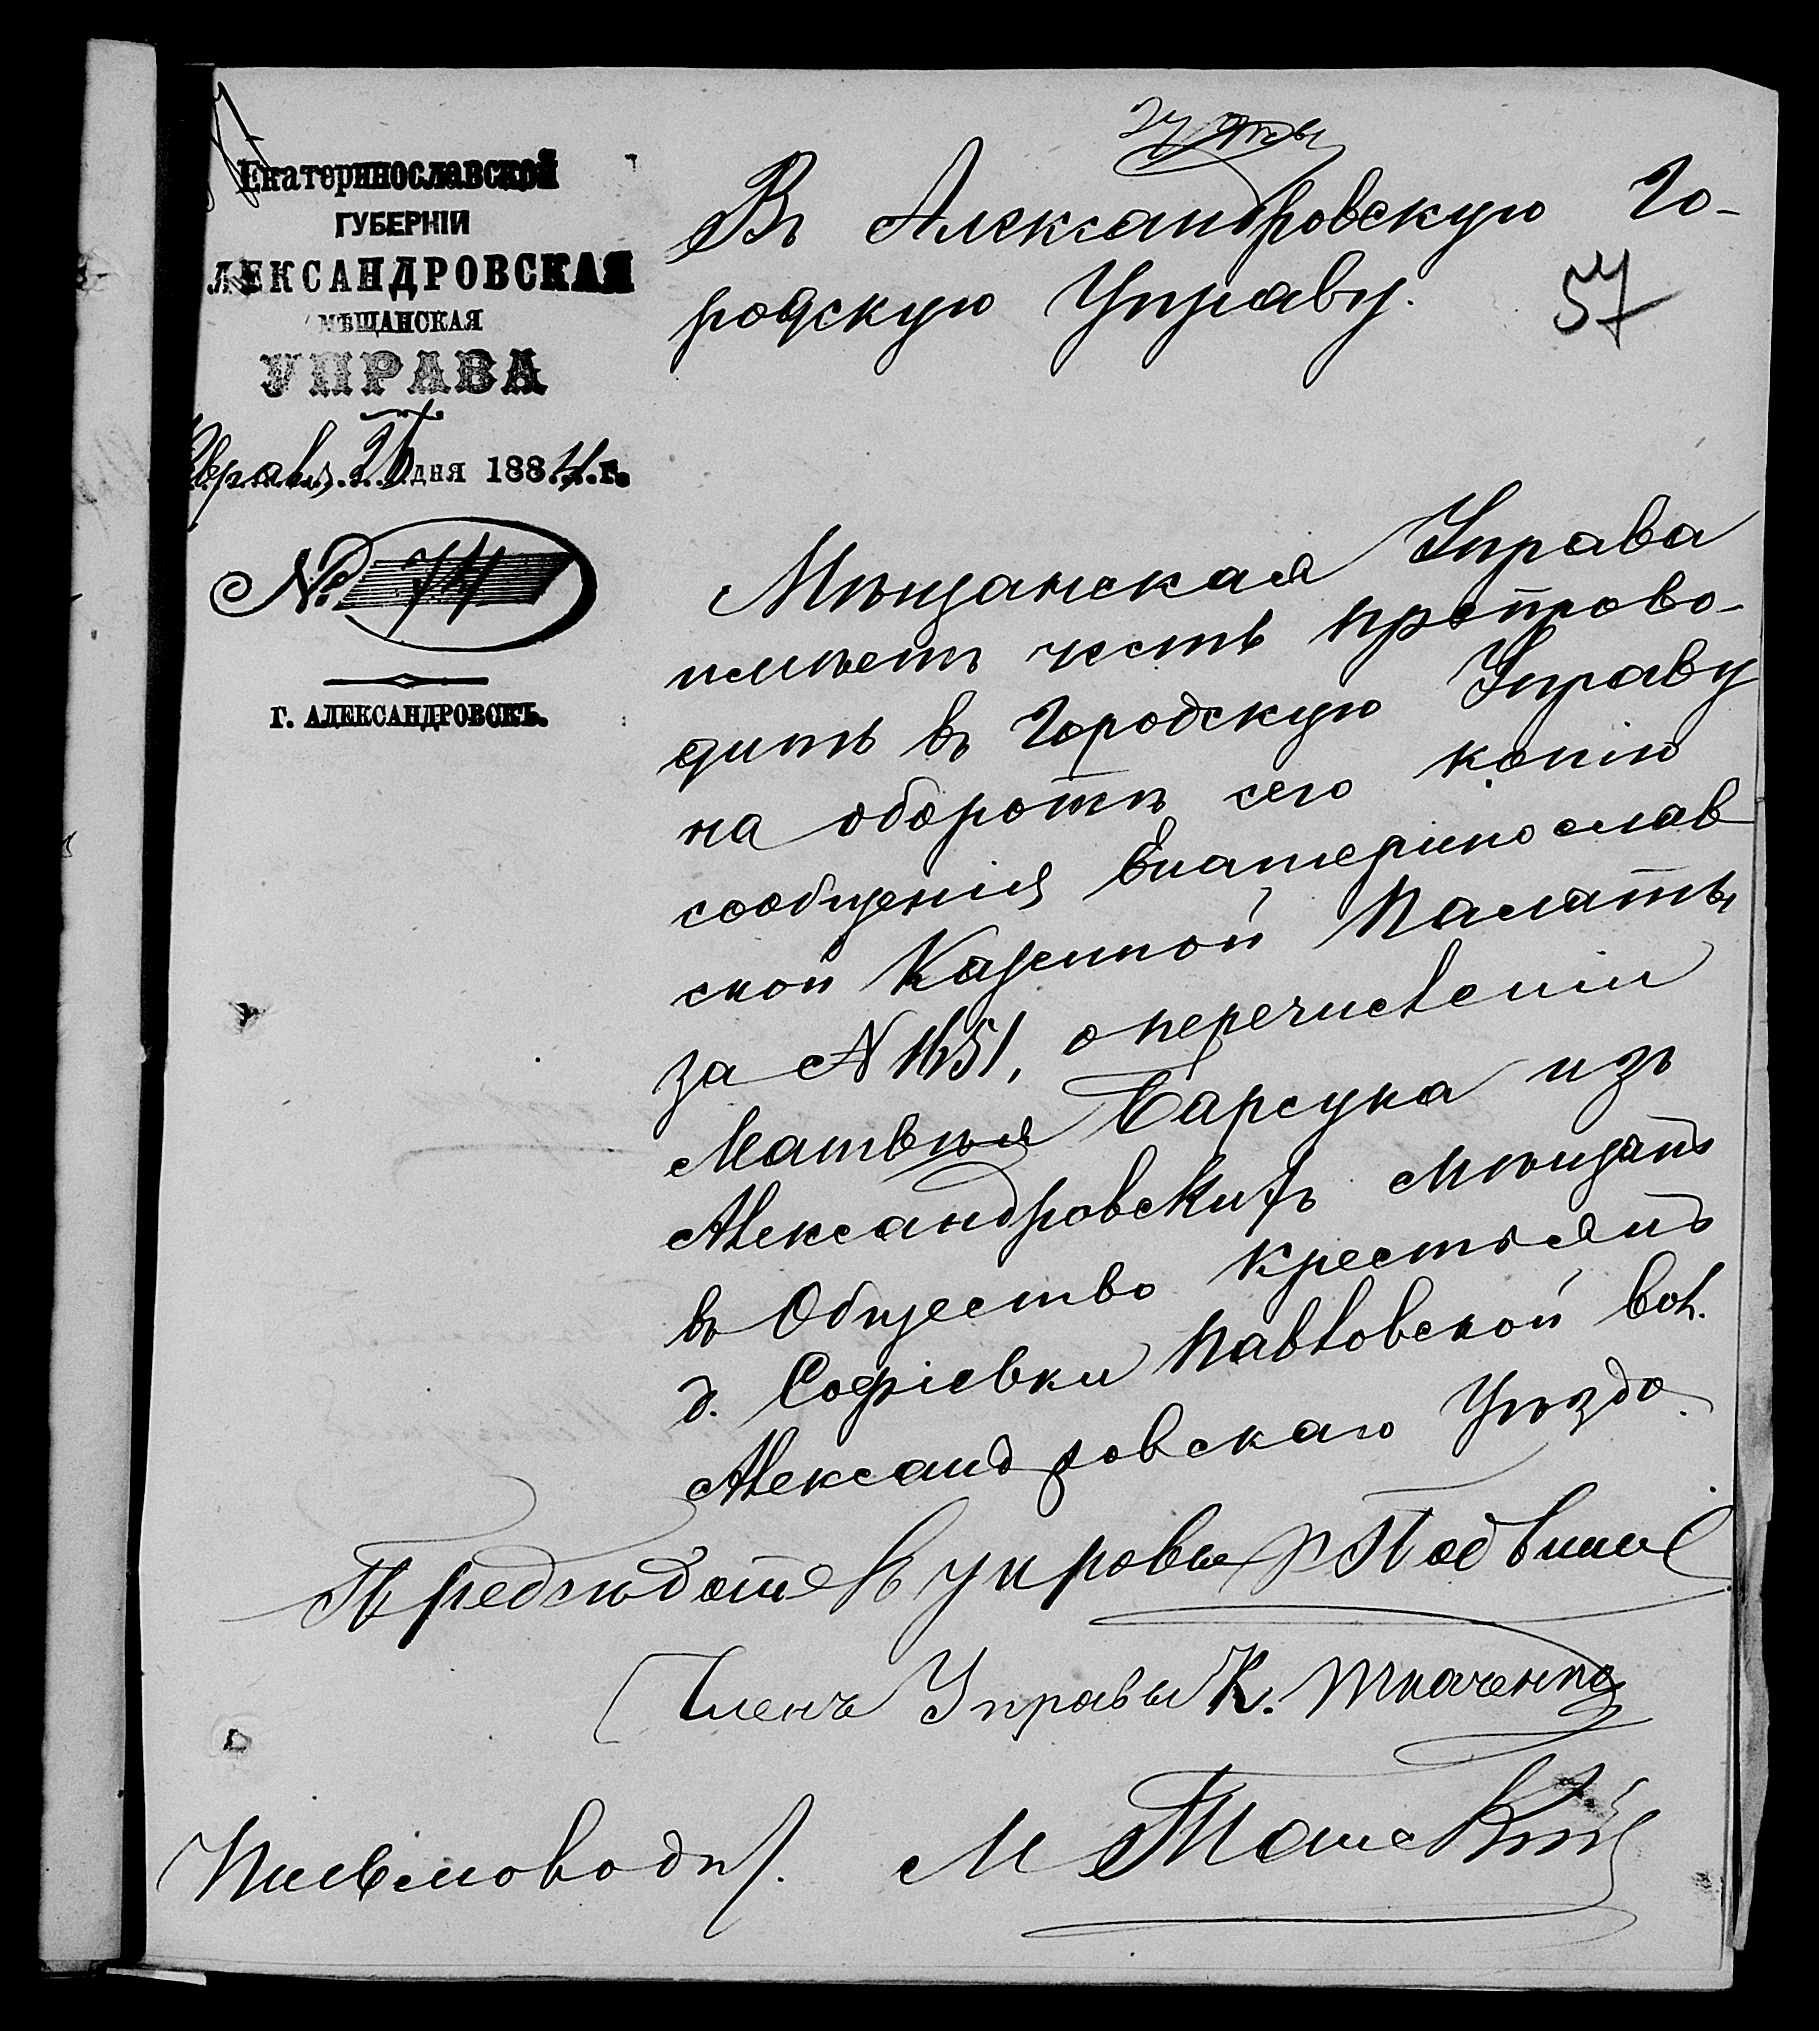 Екатеринославской
ГУБЕРНІИ
АЛЕКСАНДРОВСКАЯ
МѢЩАНСКАЯ
УПРАВА
дня 1884 г.
№ 74
Г. АЛЕКСАНДРОВСКЪ.
Въ Александровскую Го-
родскую Управу.
57
Мѣщанская Управа
имѣетъ честь препрово-
дить въ Городскую Управу
на оборотѣ сего копію
сообщенія Екатеринослав
ской Казенной Палаты
за № 1651, о перечисленіи
Матвѣя Барсука изъ
Александровскихъ мѣщанъ
въ Общество крестьянъ
д. Софіевки Павловской вол.
Александровскаго Уѣзда.
Предсѣдатель управы
Членъ Управы К. Ткаченко
Письмоводит.